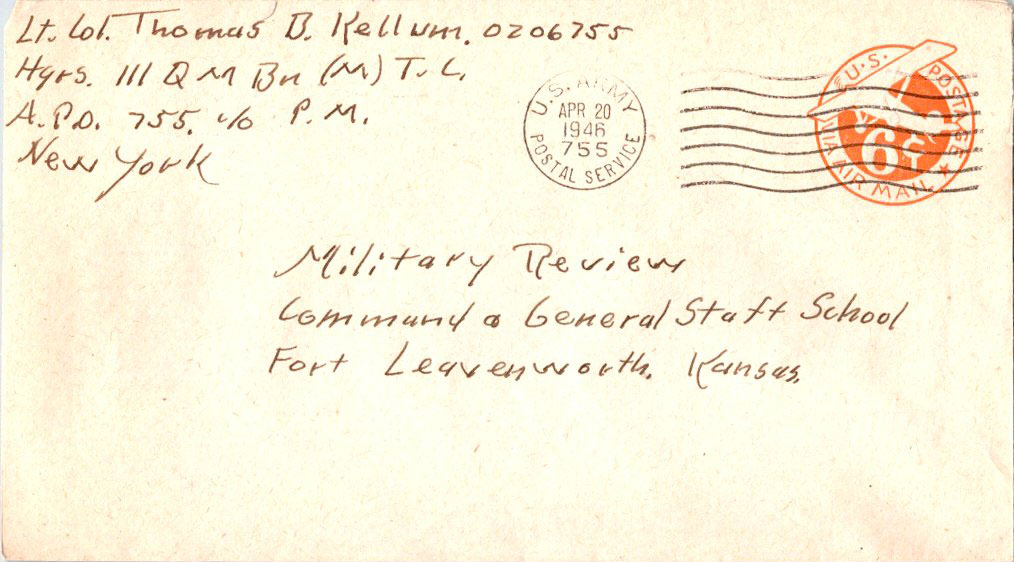 Lt. Col. Thomas B. Kellum. 0206755
Hqrs. 111 Q M Bn (M) T. C.
A.P.O. 755. c/o P. M.
New York
U.S. ARMY
APR 20
1946
755
POSTAL SERVICE
U.S. POSTAGE
6¢
VIA AIR MAIL
Military Review
Command & General Staff School
Fort Leavenworth. Kansas.